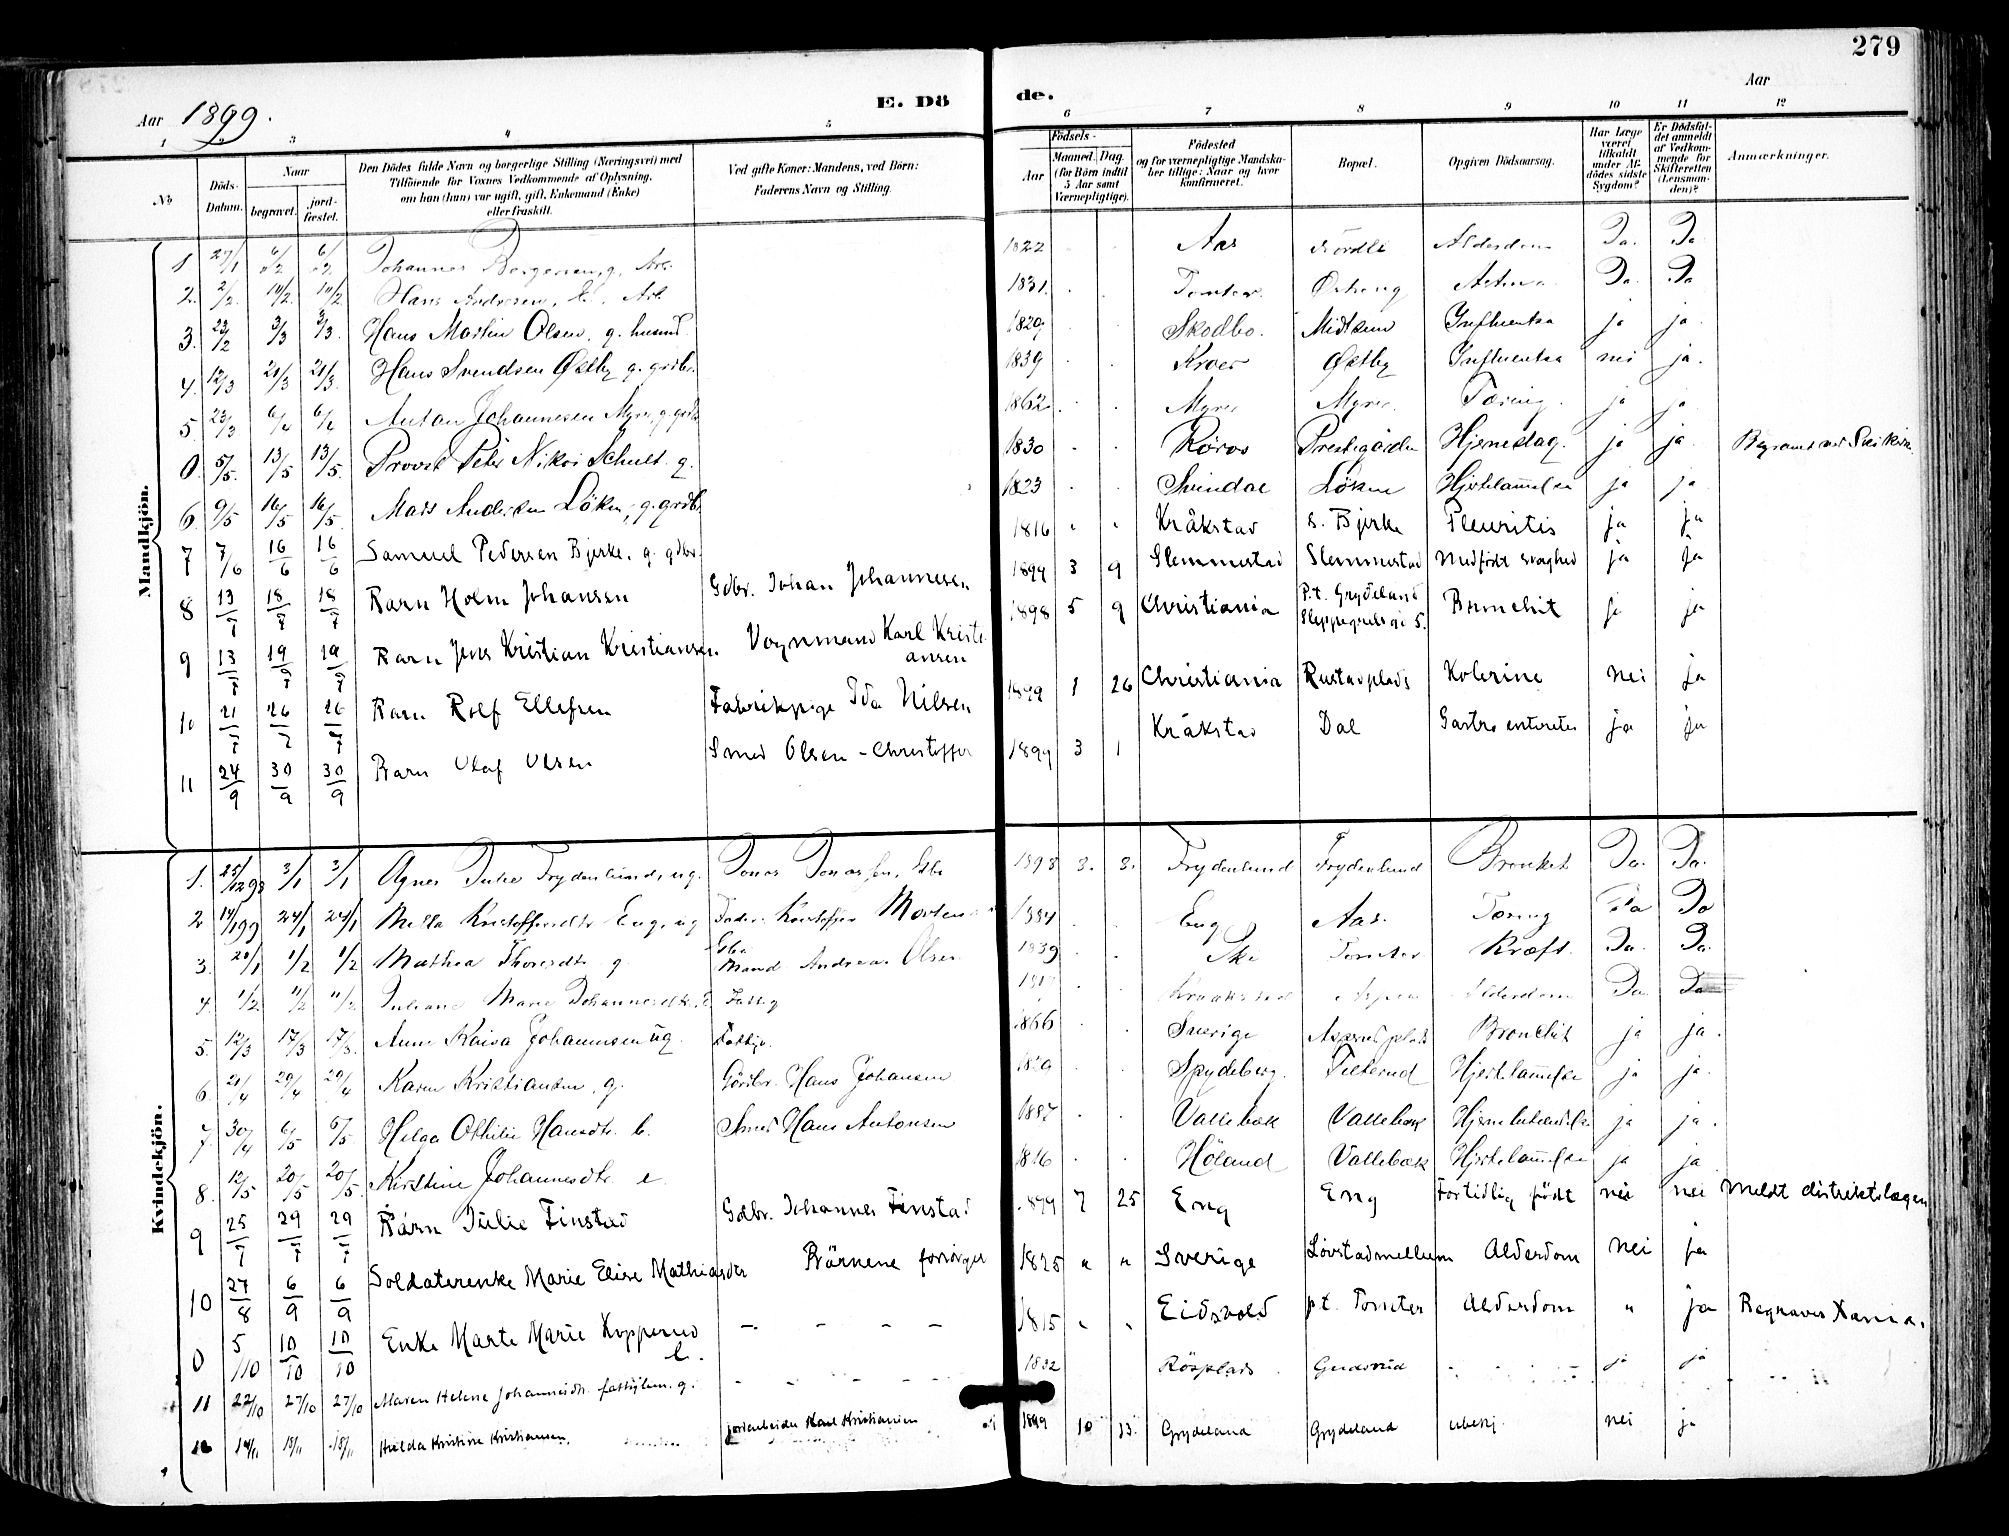 279
Aar 1899.
E. Dö de.
Aar
1 3 4 5 6 7 8 9 10 11 12
No
Döds-Datum.
Naar
begravet.
jord-fæstet.
Den Dödes fulde Navn og borgerlige Stilling (Næringsvei) med Tilföiende for Voxnes Vedkommende af Oplysning, om han (hun) var ugift, gift, Enkemand (Enke) eller fraskilt.
Ved gifte Koner: Mandens, ved Börn: Faderens Navn og Stilling.
Födsels-
Aar
Maaned. Dag.
(for Börn indtil 5 Aar samt Værnepligtige).
Födested og for værnepligtige Mandskaber tillige: Naar og hvor konfirmeret.
Bopæl.
Opgiven Dödsaarsag.
Har Læge været tilkaldt under Afdödes sidste Sygdom?
Er Dödsfaldet anmeldt af Vedkommende for Skifteretten (Lensmanden)?
Anmærkninger.
Mandkjön.
1 27/1 6/2 6/2 Johannes Borgersen, g, Arb. 1822 Aas Alderdom Ja. Ja
2. 2/2. 14/2. 14/2 Hans Andersen, Arb. 1831. Tomter. Astma Ja. Ja
3. 23/2 3/3 3/3. Hans Martin Olsen, g. husmd. 1829 Skodbo. Midtsem Influentsa ja ja
4. 12/3 21/3 21/3. Hans Svendsen Østby g. grdbr. 1839 Kroer Østby Influentsa nei ja.
5. 23/3 6/4 6/4 Anton Johannesen Myrer, g. grdb 1862. Myrer Myrer. Tæring. ja ja
0. 5/5. 13/5 13/5. Provst Peter Nikoi Schult. g. 1830 Røros Prestegården Hjerneslag. ja ja Begravet ved Ski Kirke
6. 9/5 16/5 16/5. Mats Andersen Löken, g. grdbr. 1823 Svindal Löken Hjertelam̅else ja ja
7 7/6 16/6 16/6 Samuel Pedersen Bjerke. g. gdbr. 1816 " " Kråkstad s. Bjerke Pleuritis ja ja
8 13/7 18/7 18/7 Barn Holm Johansen Gdbr. Johan Johannesen 1899 3 9 Slemmestad Slemmestad Medfödt svaghed ja ja
9 13/7 19/7 19/7 Barn Jens Kristian Kristiansen. Vognmand Karl Kristiansen 1898 5 9 Christiania P.t. Grydeland Bronchit ja ja
10 21/7 26/7 26/7 Barn Rolf Ellefsen Fabrikpige Ida Nilsen 1899 1 26 Christiania Rustadplads Kolerine nei ja
11 24/9 30/9 30/9 Barn Olaf Olsen Smed Olsen - Christoffer 1899 3 1 Kråkstad Dal Gastro enterites ja ja
Kvindekjön.
1. 25/12 98 3/1 3/1 Agnes Julie Frydenlund, ug. Jonas Jonassen, Gbr 1898 3. 3. Frydenlund Frydenlund Bronkit Ja. Ja.
2 14/1 99 24/1 24/1 Milla Kristoffersdtr Eng, ug Fader. Kristoffer Morten 1884 Eng Aas. Tæring Ja Ja
3. 20/1 1/2 1/2 Mathea Thoresdtr g. Gbr Mand Andreas Olsen 1839 Ski Tomter Kræft. Ja. Ja.
4. 1/2. 11/2 11/2 Juliane Marie Johannesdtr. Fattig Kraakstad Aspen Alderdom Ja Ja
5. 12/3 17/3 17/3. Anne Kaisa Johannesen ug. Fattigu. 1866 Sverige Aspenes plads Bronchit ja ja.
6. 21/4 29/4 29/4 Karen Kristiansen, g. Gårdbr. Hans Johansen Spydeberg. Fieterud Hjertelam̅else ja ja.
7. 30/4 6/5 6/5 Helga Othilie Hansdtr. b. Smed Hans Antonsen 1887 Vallebæk Vallebæk ja ja.
8. 12/5 20/5 20/5. Kirstine Johannesdtr. e. 1816 Höland Vallebæk Hjertelam̅else ja ja
9 25/7 29/7 29/7 Barn Julie Finstad Gdbr. Johannes Finstad 1899 7 25 Eng Eng Fortidlig födt nei nei Meldt distriktslægen
10 27/8 6/9 6/9 Soldaterenke Marie Elise Mathiasdtr Börnene forsörger 1825 " " Sverige Lövstadmellum Alderdom nei ja
0 5/10 10/10 10/10 Enke Marte Marie Kopperud e. - - - - 1815 " " Eidsvold p.t. Tomter Alderdom " ja Begraves Xania.
11 22/10 27/10 27/10 Maren Helene Johannesdtr. fattiglem. g. - - - - 1832 Rösplads Gudsrud - - - ja ja
12 14/11 18/11 18/11 Hulda Kristine Kristiansen. jordarbeider Karl Kristiansen 1899 10 13. Grydeland Grydeland ubekj. nei ja